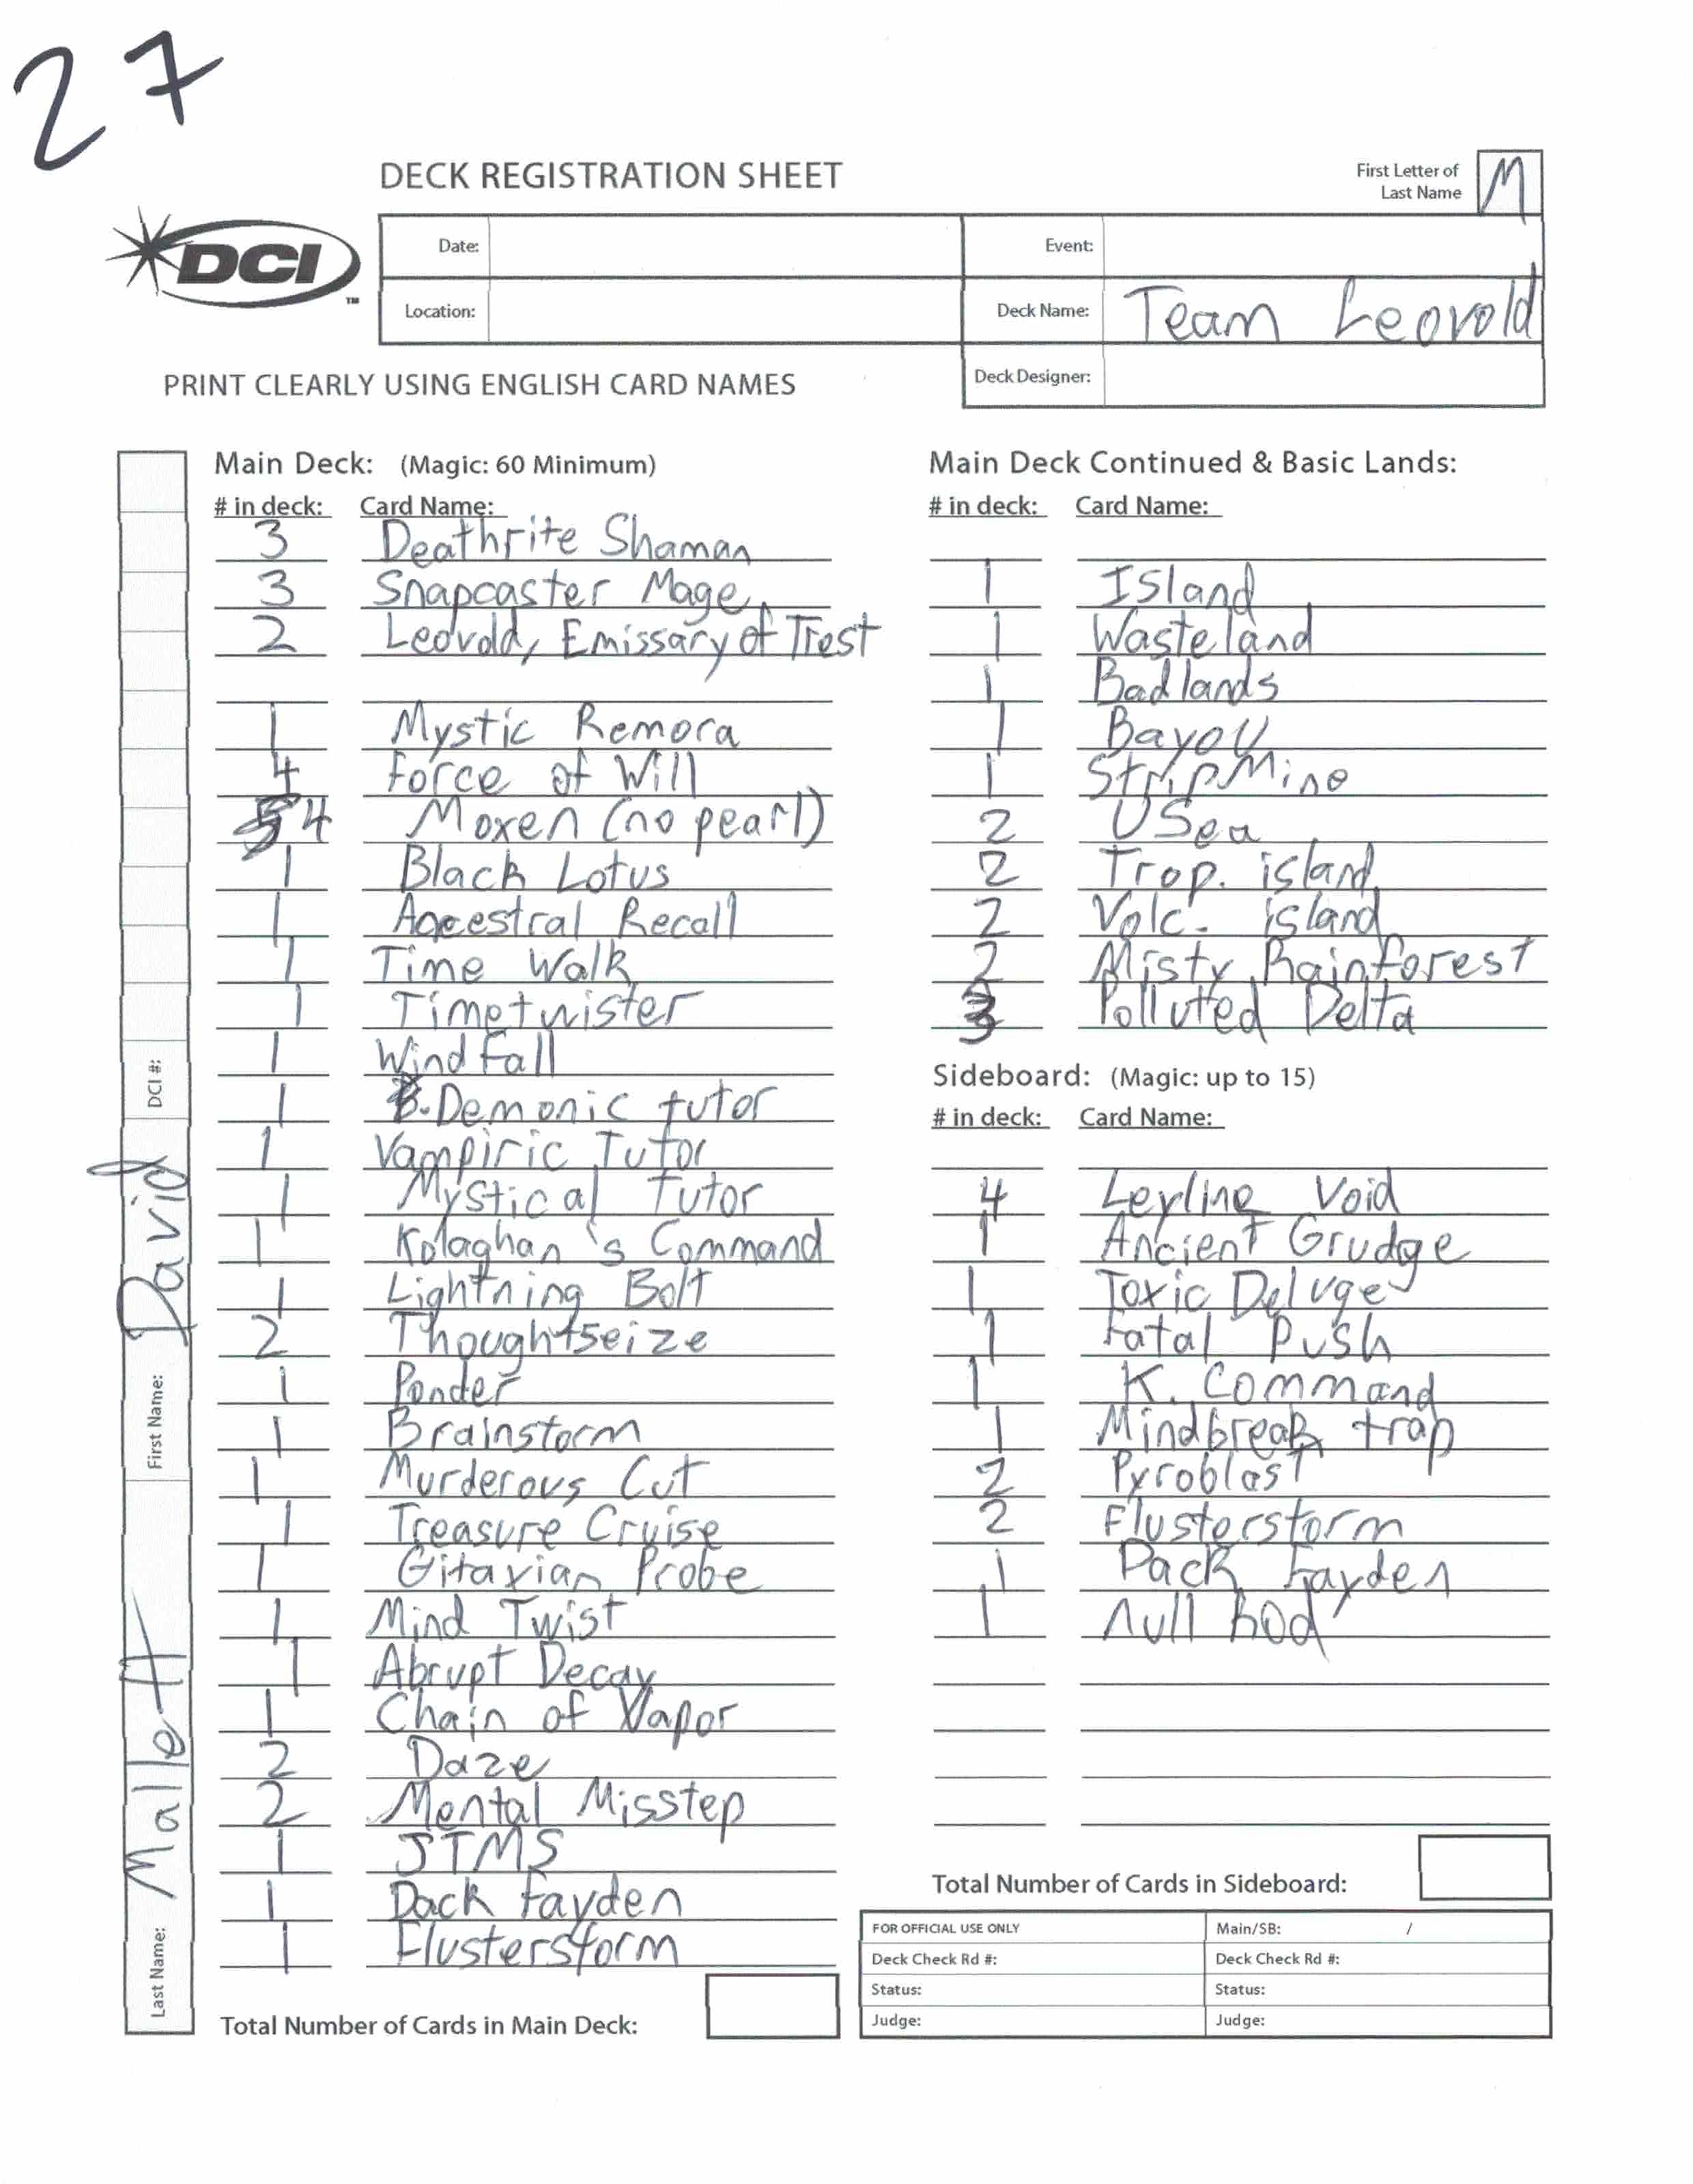 27
DECK REGISTRATION SHEET
First Letter of
Last Name
M
DCI
TM
Date:
Event:
Location:
Deck Name: Team Leovold
PRINT CLEARLY USING ENGLISH CARD NAMES
Deck Designer:
Main Deck: (Magic: 60 Minimum)
# in deck: Card Name:
3 Deathrite Shaman
3 Snapcaster Mage
2 Leovold, Emissary of Trest
1 Mystic Remora
4 Force of Will
4 Moxen (no pearl)
1 Black Lotus
1 Ancestral Recall
1 Time Walk
1 Timetwister
1 Windfall
1 Demonic tutor
1 Vampiric Tutor
1 Mystical Tutor
1 Kolaghan's Command
1 Lightning Bolt
2 Thoughtseize
1 Ponder
1 Brainstorm
1 Murderous Cut
1 Treasure Cruise
1 Gitaxian Probe
1 Mind Twist
1 Abrupt Decay
1 Chain of Vapor
2 Daze
2 Mental Misstep
1 JTMS
1 Dack Fayden
1 Flusterstorm
Total Number of Cards in Main Deck:
Main Deck Continued & Basic Lands:
# in deck: Card Name:
1 Island
1 Wasteland
1 Badlands
1 Bayou
1 StripMine
2 USea
2 Trop. island
2 Volc. island
2 Misty Rainforest
3 Polluted Delta
Sideboard: (Magic: up to 15)
# in deck: Card Name:
4 Leyline Void
1 Ancient Grudge
1 Toxic Deluge
1 Fatal Push
1 K. Command
1 Mindbreak trap
2 Pyroblast
2 Flusterstorm
1 Dack Fayden
1 Null Rod
Total Number of Cards in Sideboard:
FOR OFFICIAL USE ONLY
Main/SB: /
Deck Check Rd #:
Deck Check Rd #:
Status:
Status:
Judge:
Judge:
Last Name: Mallett
First Name: David
DCI #: